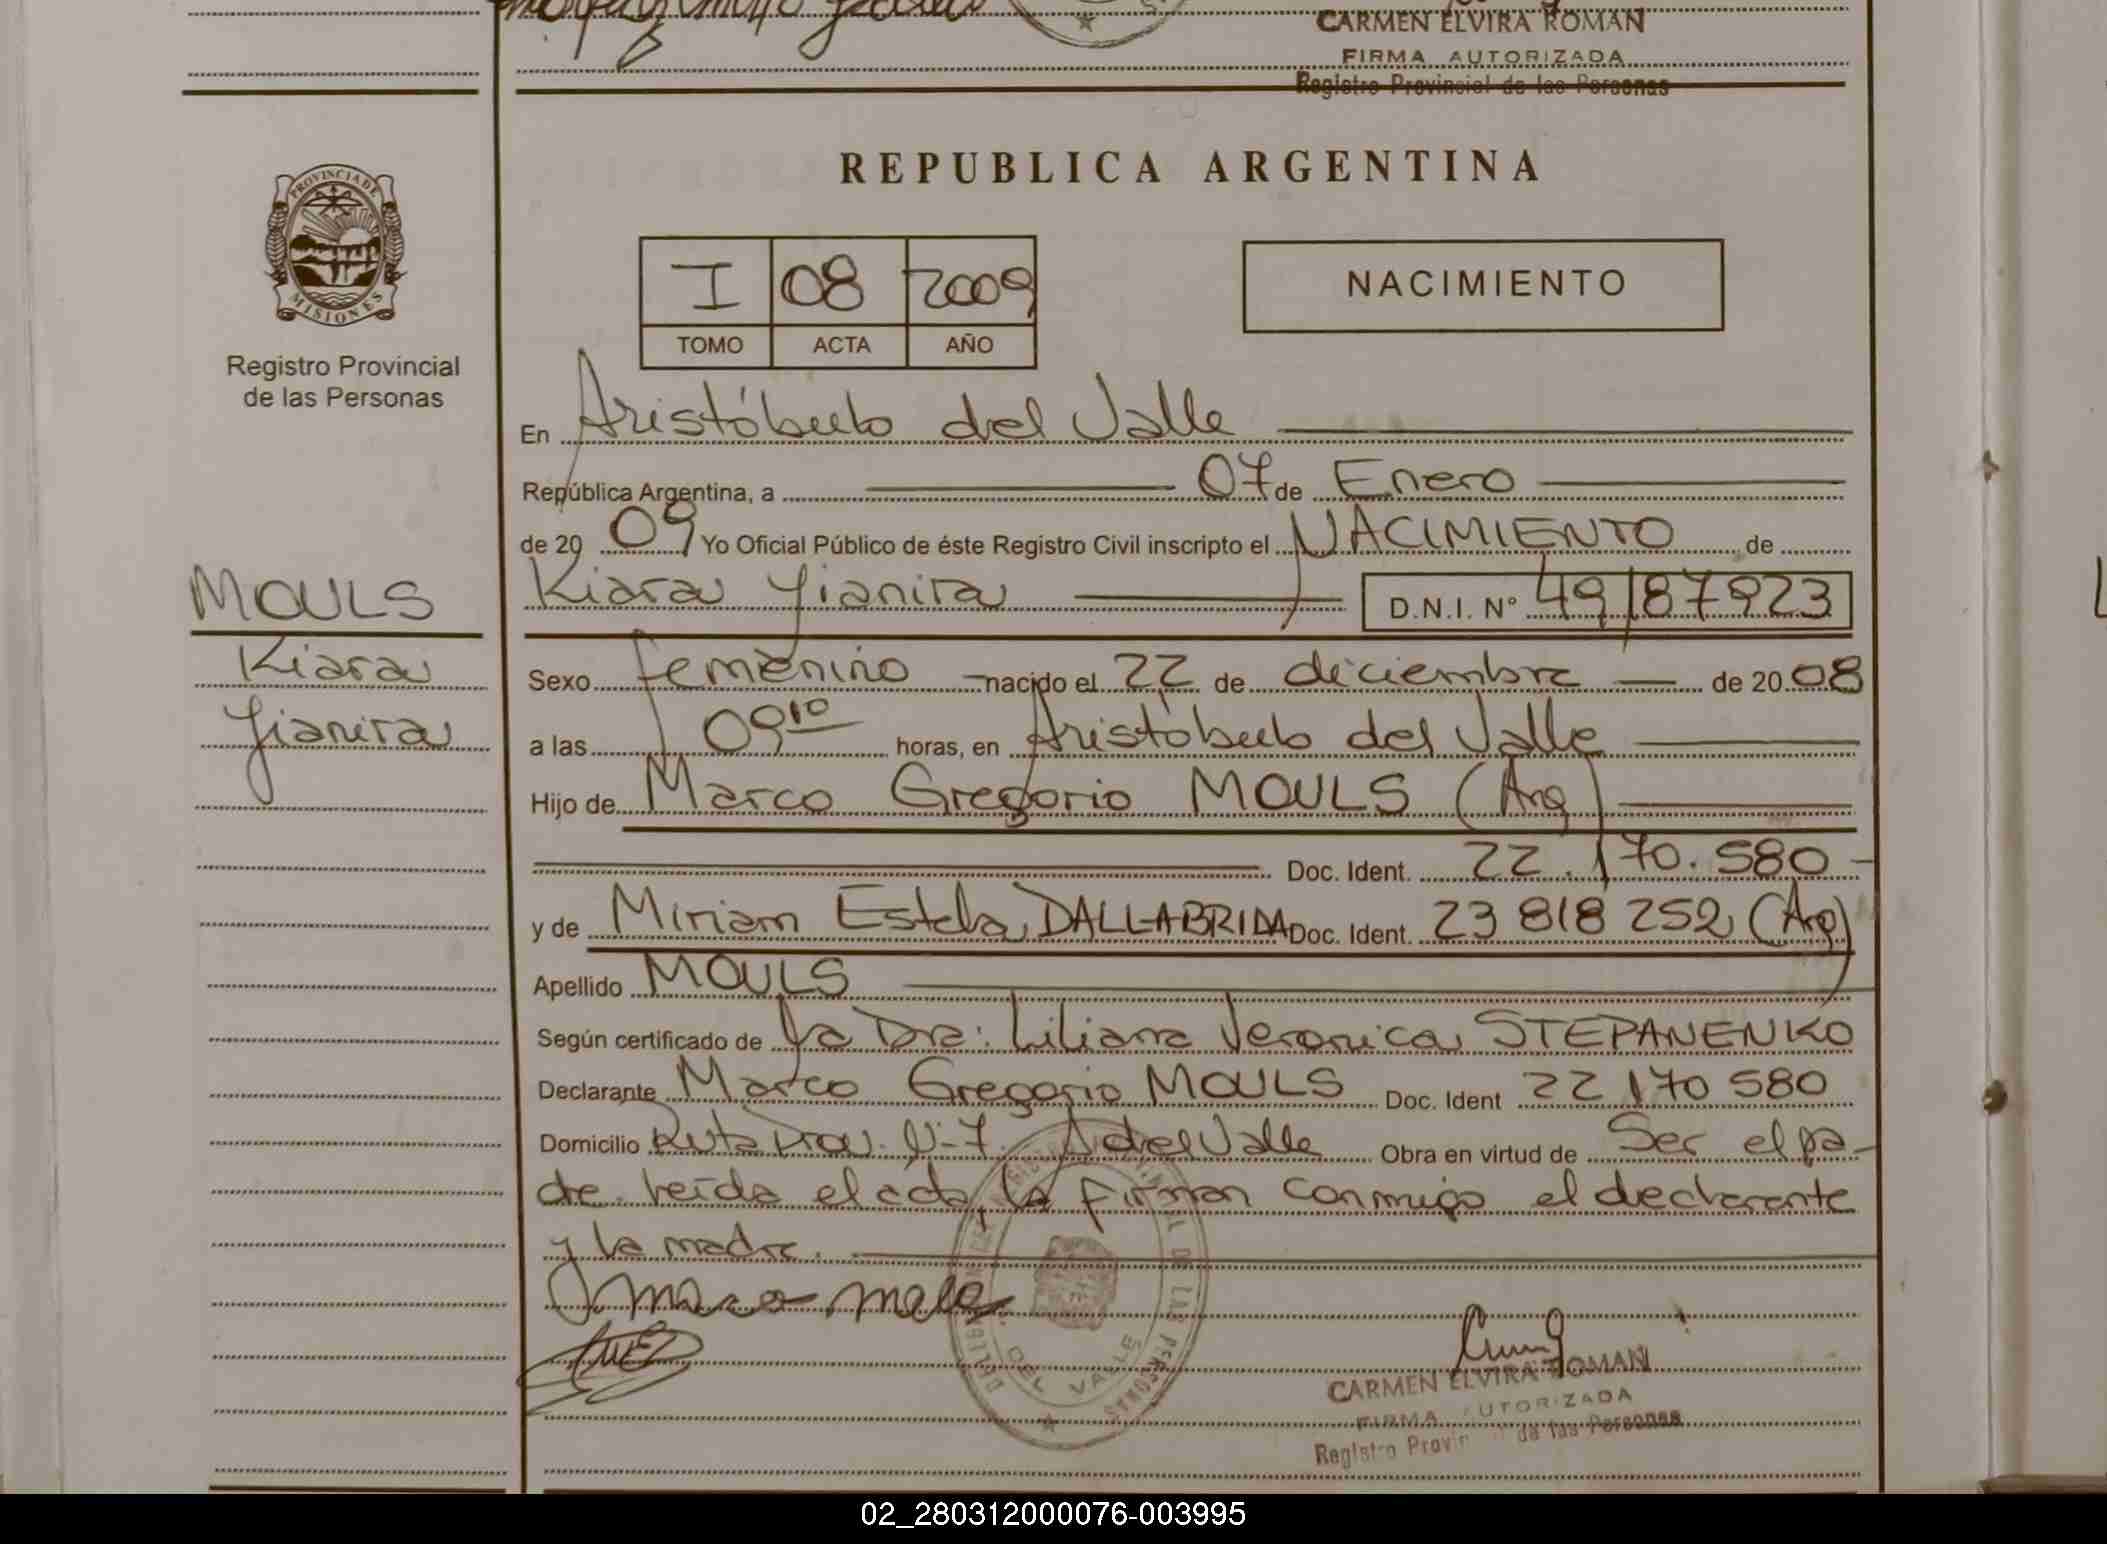 CARMEN ELVIRA ROMAN
FIRMA AUTORIZADA
Registro Provincial de las Personas
PROVINCIA DE
MISIONES
Registro Provincial
de las Personas
MOULS
Kiara
Yianira
REPUBLICA ARGENTINA
I 08 2009
TOMO ACTA AÑO
NACIMIENTO
En Aristóbulo del Valle
República Argentina, a 07 de Enero
de 20 09 Yo Oficial Público de éste Registro Civil inscripto el NACIMIENTO de
Kiara Yianira D.N.I. Nº 49187923
Sexo femenino nacido el 22 de diciembre de 20 08
a las 09 10 horas, en Aristóbulo del Valle
Hijo de Marco Gregorio MOULS (Arg)
Doc. Ident. 22.170.580-
y de Miriam Estela DALLABRIDA Doc. Ident. 23 818 252 (Arg)
Apellido MOULS
Según certificado de la Dra: Liliana Veronica STEPANENKO
Declarante Marco Gregorio MOULS Doc. Ident 22 170 580
Domicilio Ruta Prov. Nº 7. A del Valle Obra en virtud de Ser el pa-
dre. Leída el acta, la firman conmigo el declarante
y la madre.
DEL VALLE
DE LAS PERSONAS
CARMEN ELVIRA ROMAN
FIRMA AUTORIZADA
Registro Provin de las Personas
02_280312000076-003995